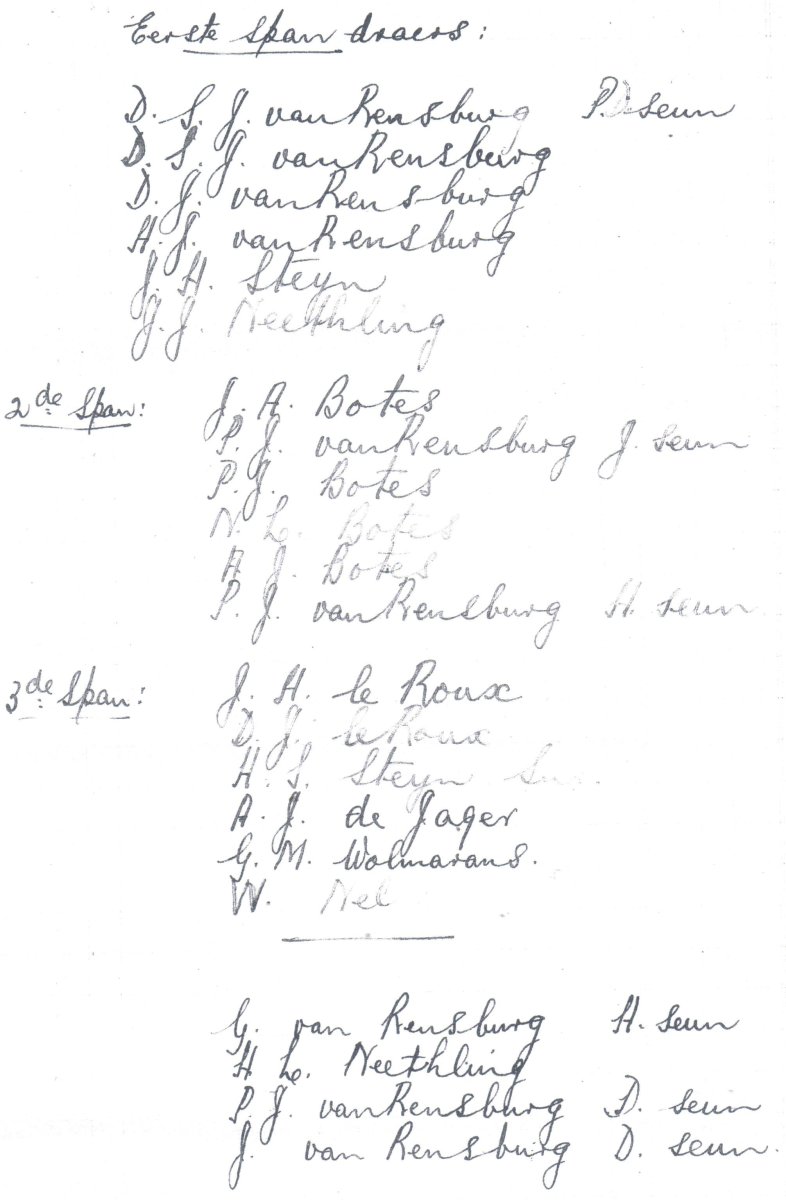 Eerste span draers:
D. S. J. van Rensburg P. D. seun
D. S. J. van Rensburg
D. J. van Rensburg
H. J. van Rensburg
J. H. Steyn
J. J. Neethling
2de Span: J. A. Botes
P. J. van Rensburg J. seun
P. J. Botes
N. L. Botes
A J. Botes
P. J. van Rensburg H. seun
3de Span: J. H. le Roux
D. J. le Roux
H. S. Steyn
A. J. de Jager
G. M. Wolmarans.
W. Nel
G. van Rensburg H. seun
H L. Neethling
P. J. van Rensburg D. seun
J. van Rensburg D. seun.